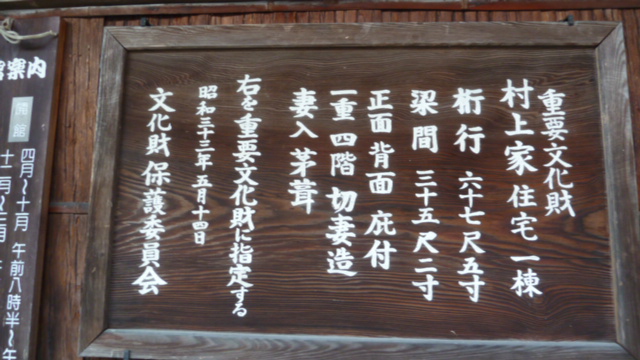 重要文化財
村上家住宅一棟
桁行 六十七尺五寸
梁間 三十五尺二寸
正面背面庇付
一重四階切妻造
妻入茅葺
右を重要文化財に指定する
昭和三十三年五月十四日
文化財保護委員会
案内
開館
四月〜十月 午前八時半〜午
十一月〜三月